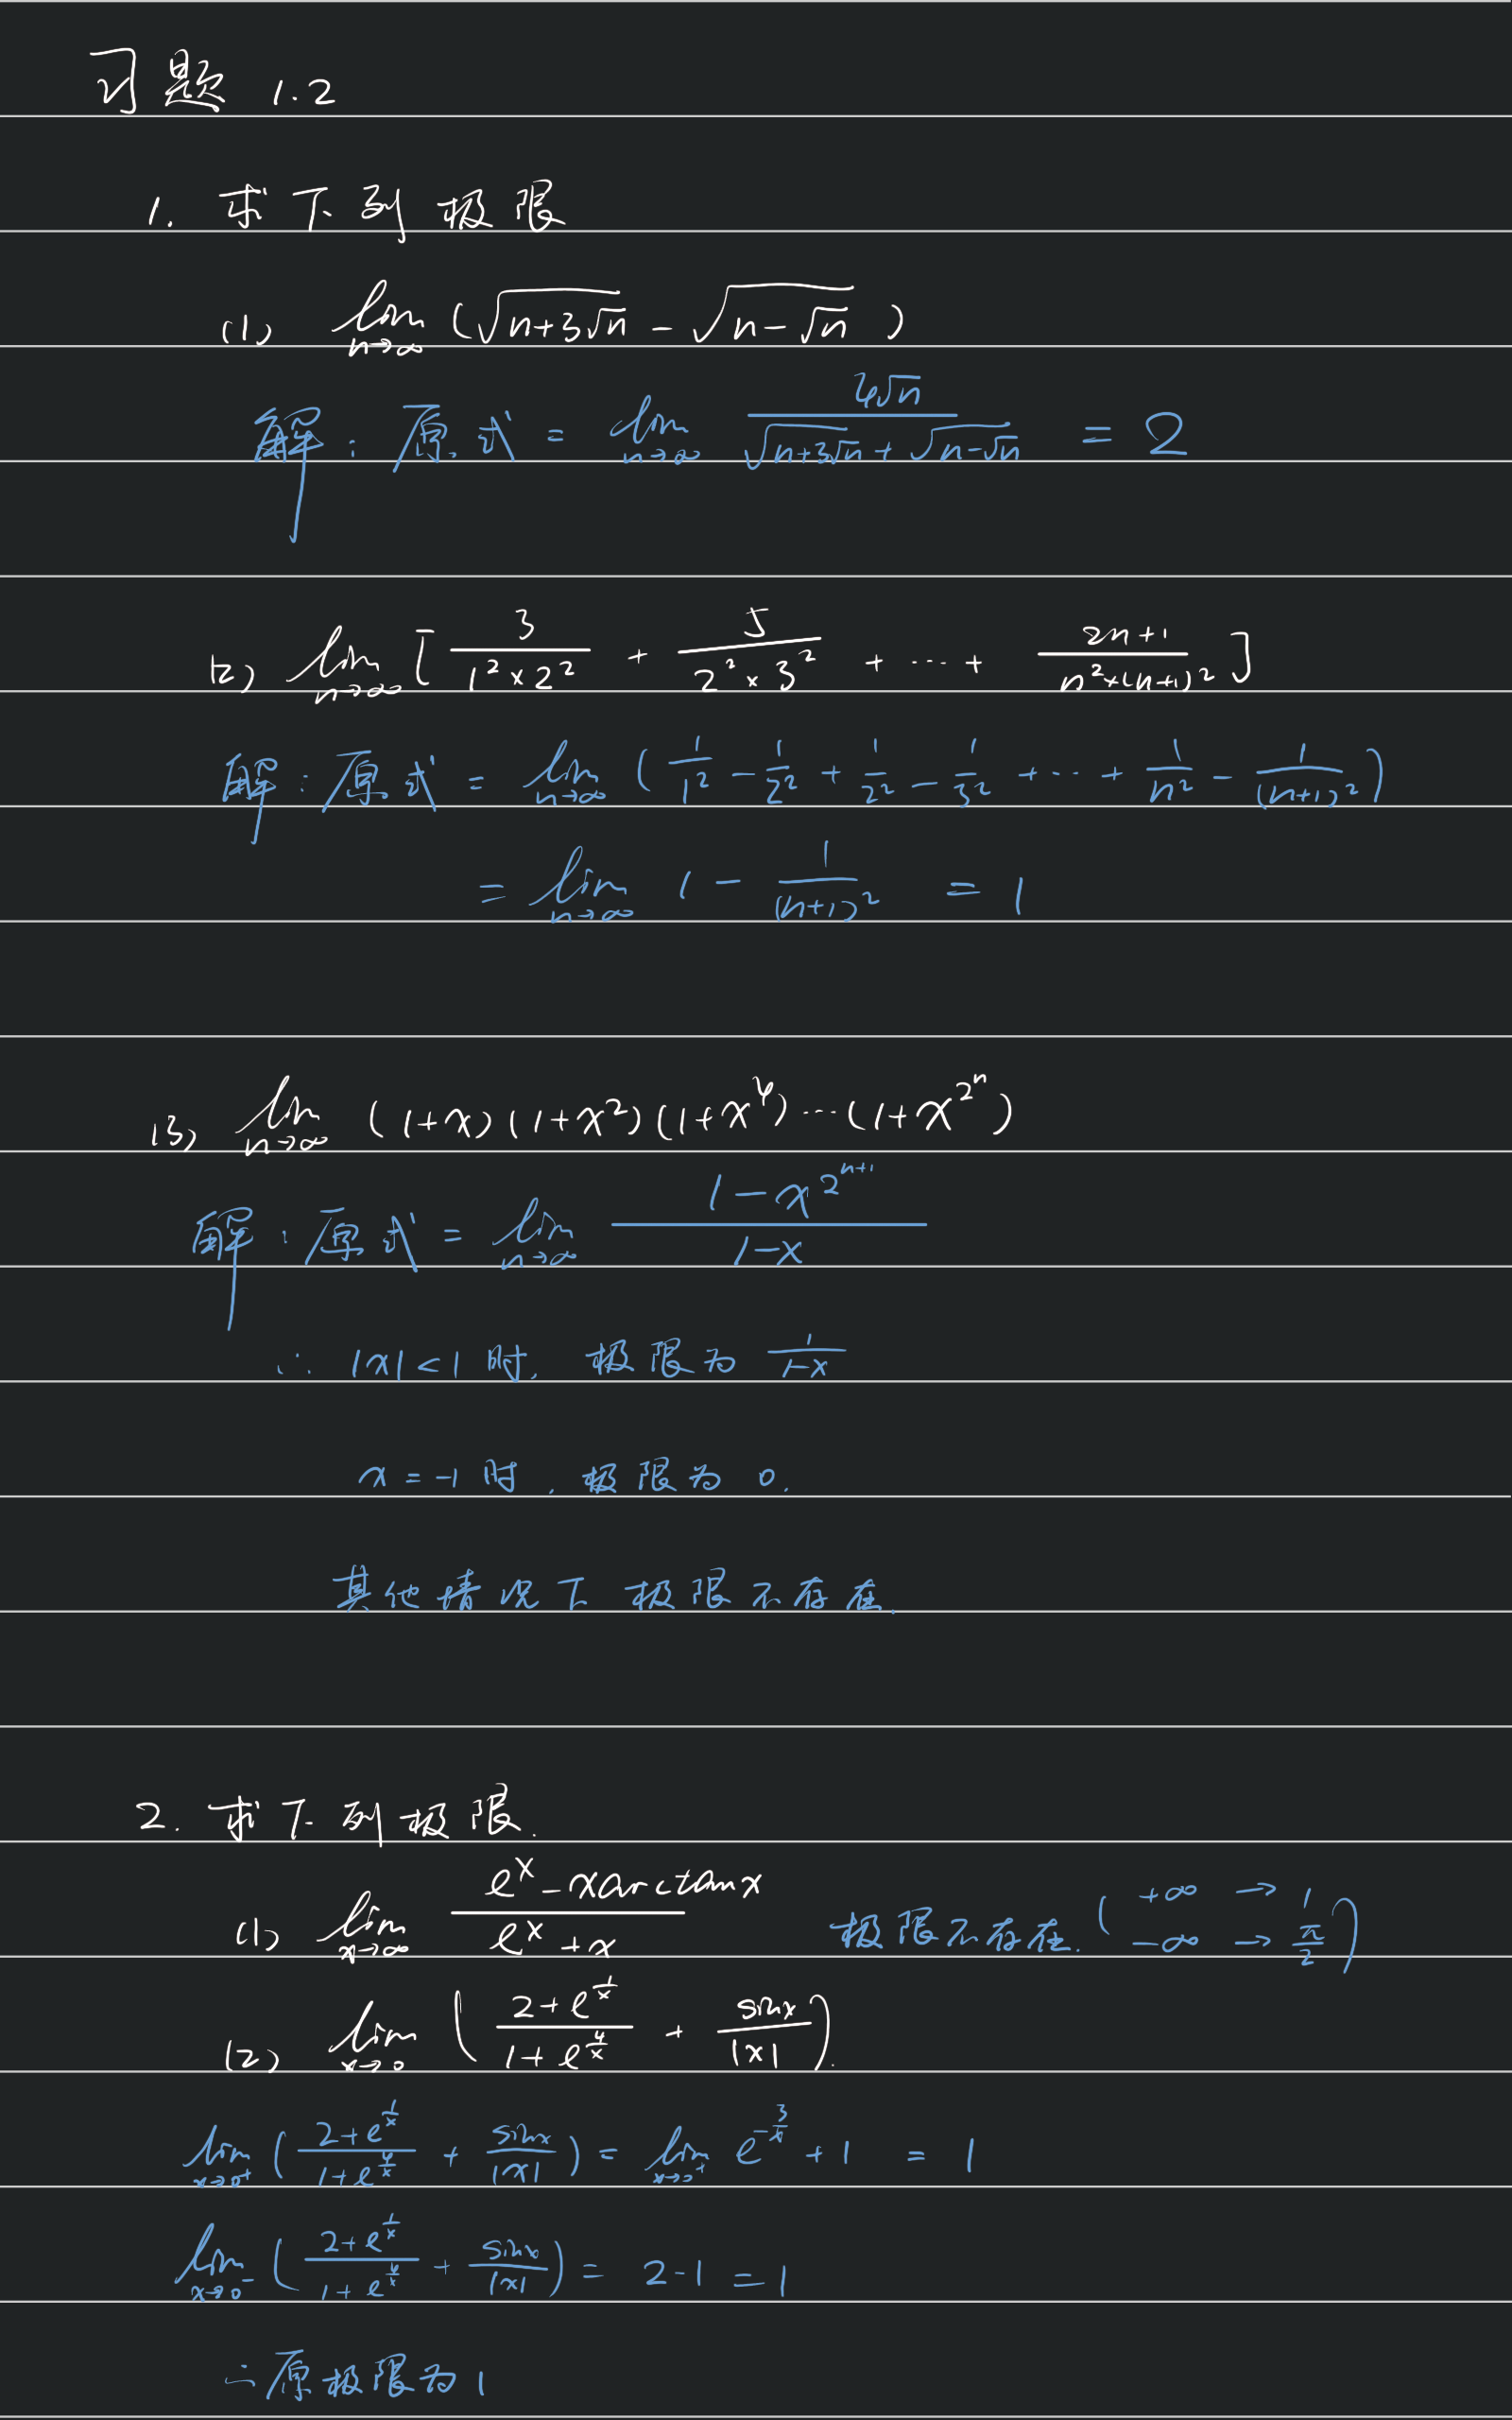 习题 1.2
1. 求下列极限
(1) lim_{n→∞} (√(n+3√n) - √(n-√n))
解：原式 = lim_{n→∞} 4√n / (√(n+3√n) + √(n-√n)) = 2
(2) lim_{n→∞} [3/(1²×2²) + 5/(2²×3²) + ⋯ + (2n+1)/(n²×(n+1)²)]
解：原式 = lim_{n→∞} (1/1² - 1/2² + 1/2² - 1/3² + ⋯ + 1/n² - 1/(n+1)²)
= lim_{n→∞} 1 - 1/(n+1)² = 1
(3) lim_{n→∞} (1+x)(1+x²)(1+x⁴)⋯(1+x^{2^n})
解：原式 = lim_{n→∞} (1-x^{2^{n+1}})/(1-x)
∴ |x|<1 时, 极限为 1/(1-x)
x=-1 时, 极限为 0.
其他情况下极限不存在.
2. 求下列极限.
(1) lim_{x→∞} (e^x - x arctan x)/(e^x + x) 极限不存在. (+∞ → 1, -∞ → π/2)
(2) lim_{x→0} ((2+e^{1/x})/(1+e^{4/x}) + sin x/|x|).
lim_{x→0⁺} ((2+e^{1/x})/(1+e^{4/x}) + sin x/|x|) = lim_{x→0⁺} e^{-3/x} + 1 = 1
lim_{x→0⁻} ((2+e^{1/x})/(1+e^{4/x}) + sin x/|x|) = 2-1 = 1
∴原极限为1